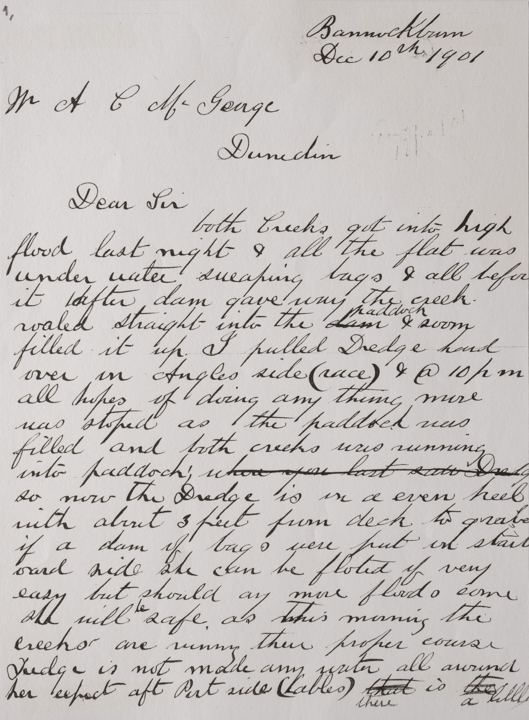 1,
Bannockburn
Dec 10th 1901
Mr A C Mc George
Dunedin
Dear Sir
both Creeks got into high
flood last night & all the flat was
under water sweaping bags & all befor
it after dam gave way the creek
roaled straight into the dam paddock & soom
filled it up. I pulled Dredge hard
over in Angles side (race) & @ 10 p m
all hopes of doing any thing more
was stoped as the paddock was
filled and both creeks was running
into paddock, when you last saw Dredg
so now the Dredge is in a even keel
with about 3 feet from deck to
if a dam of bags were put in start
ward side she can be floted if very
easy but should ay more floods come
she will be safe. as this morning the
creeks are runny their proper course
Dredge is not made any water all around
her expect aft Port side (Cables) that there is the a little